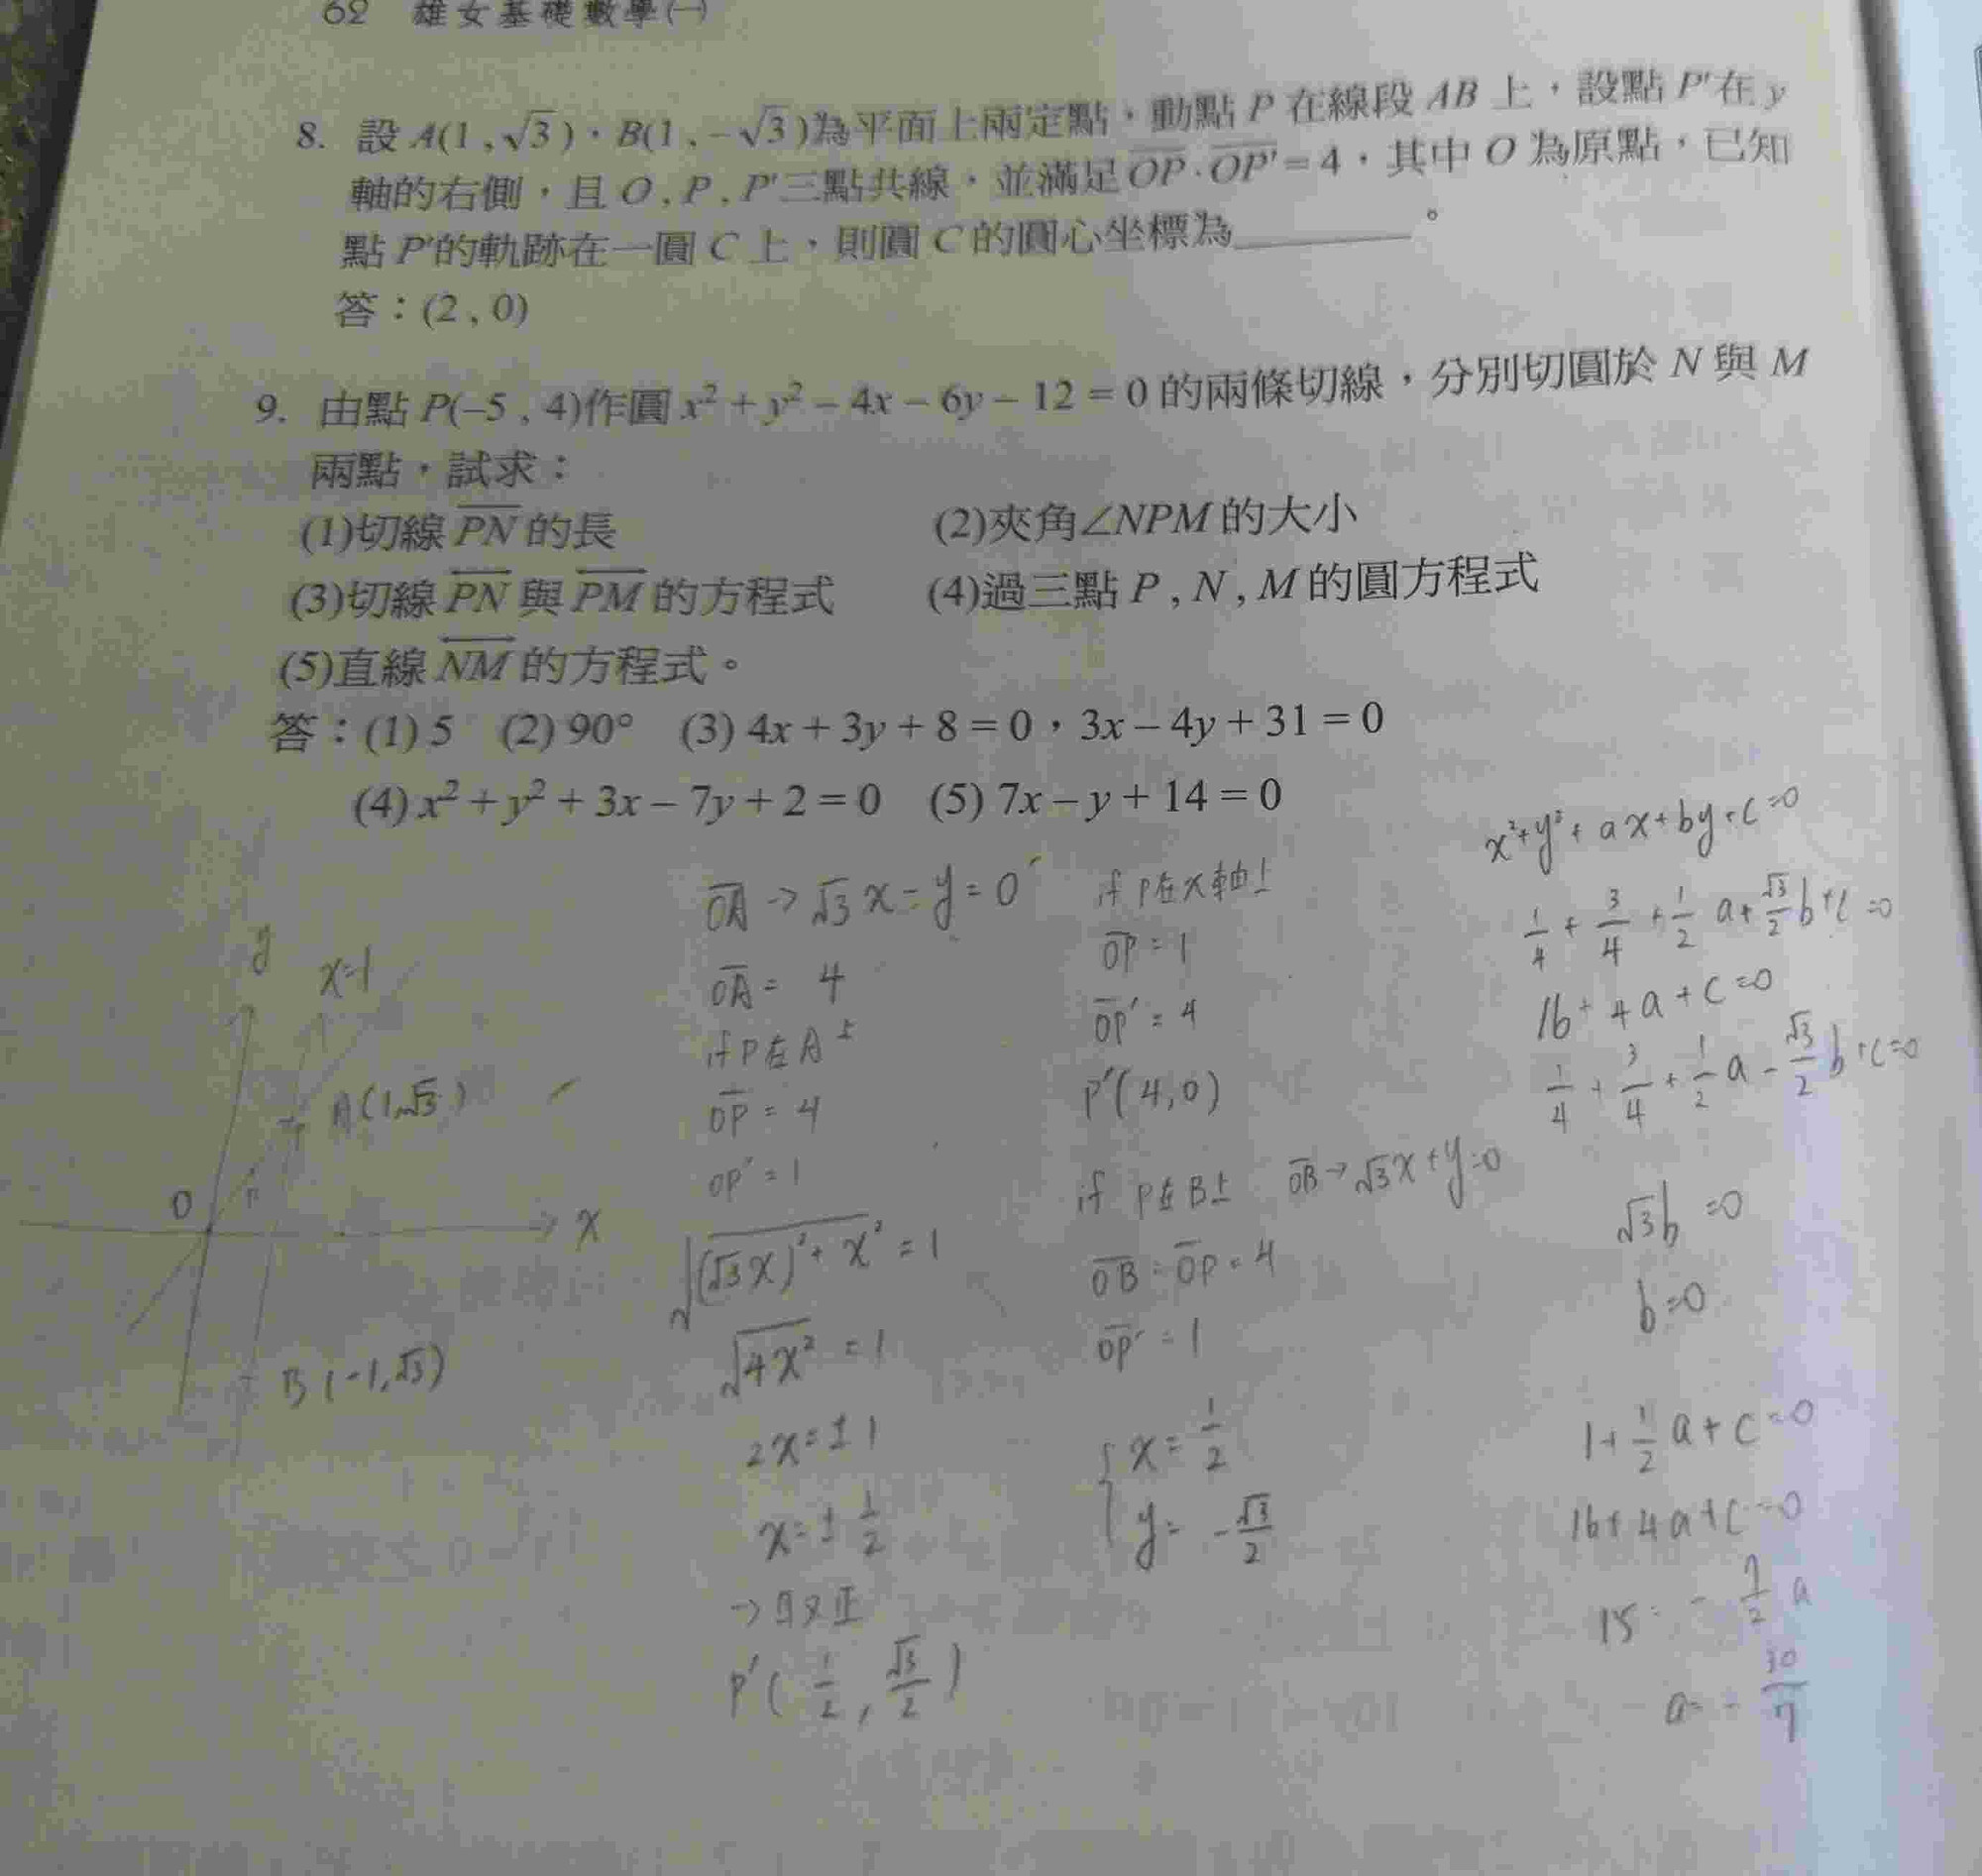 62 雄女基礎數學(一)
8. 設 A(1,√3)、B(1,-√3)為平面上兩定點,動點 P 在線段 AB 上,設點 P'在 y
軸的右側,且 O,P,P'三點共線,並滿足 OP·OP'=4,其中 O 為原點,已知
點 P'的軌跡在一圓 C 上,則圓 C 的圓心坐標為________。
答:(2,0)
9. 由點 P(-5,4)作圓 x²+y²-4x-6y-12=0 的兩條切線,分別切圓於 N 與 M
兩點,試求:
(1)切線 PN 的長 (2)夾角∠NPM 的大小
(3)切線 PN 與 PM 的方程式 (4)過三點 P,N,M 的圓方程式
(5)直線 NM 的方程式。
答:(1) 5 (2) 90° (3) 4x+3y+8=0,3x-4y+31=0
(4) x²+y²+3x-7y+2=0 (5) 7x-y+14=0
y
x=1
A(1,√3)
O
P
x
B(-1,√3)
OA→√3x=y=0
OA=4
if P在A上
OP=4
OP'=1
√((√3x)²+x²)=1
√(4x²)=1
2x=±1
x=±1/2
→取正
P'(1/2,√3/2)
if P在x軸上
OP=1
OP'=4
P'(4,0)
if P在B上 OB→√3x+y=0
OB=OP=4
OP'=1
x=1/2
y=-√3/2
x²+y²+ax+by+c=0
1/4+3/4+1/2a+√3/2b+c=0
16+4a+c=0
1/4+3/4+1/2a-√3/2b+c=0
√3b=0
b=0
1+1/2a+c=0
16+4a+c=0
15=-7/2a
a=-30/7